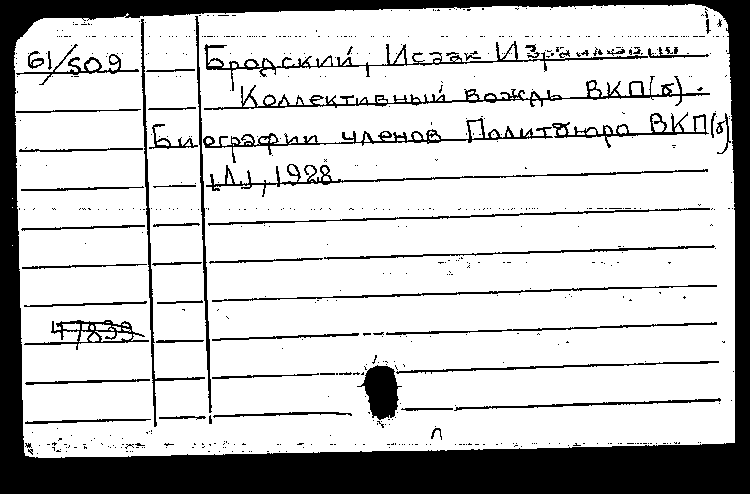 61/509 Бродский, Исаак Израилевич
Коллективный вождь ВКП(б).
Биографии членов Политбюро ВКП(б)
[Л], 1928.
47839
п